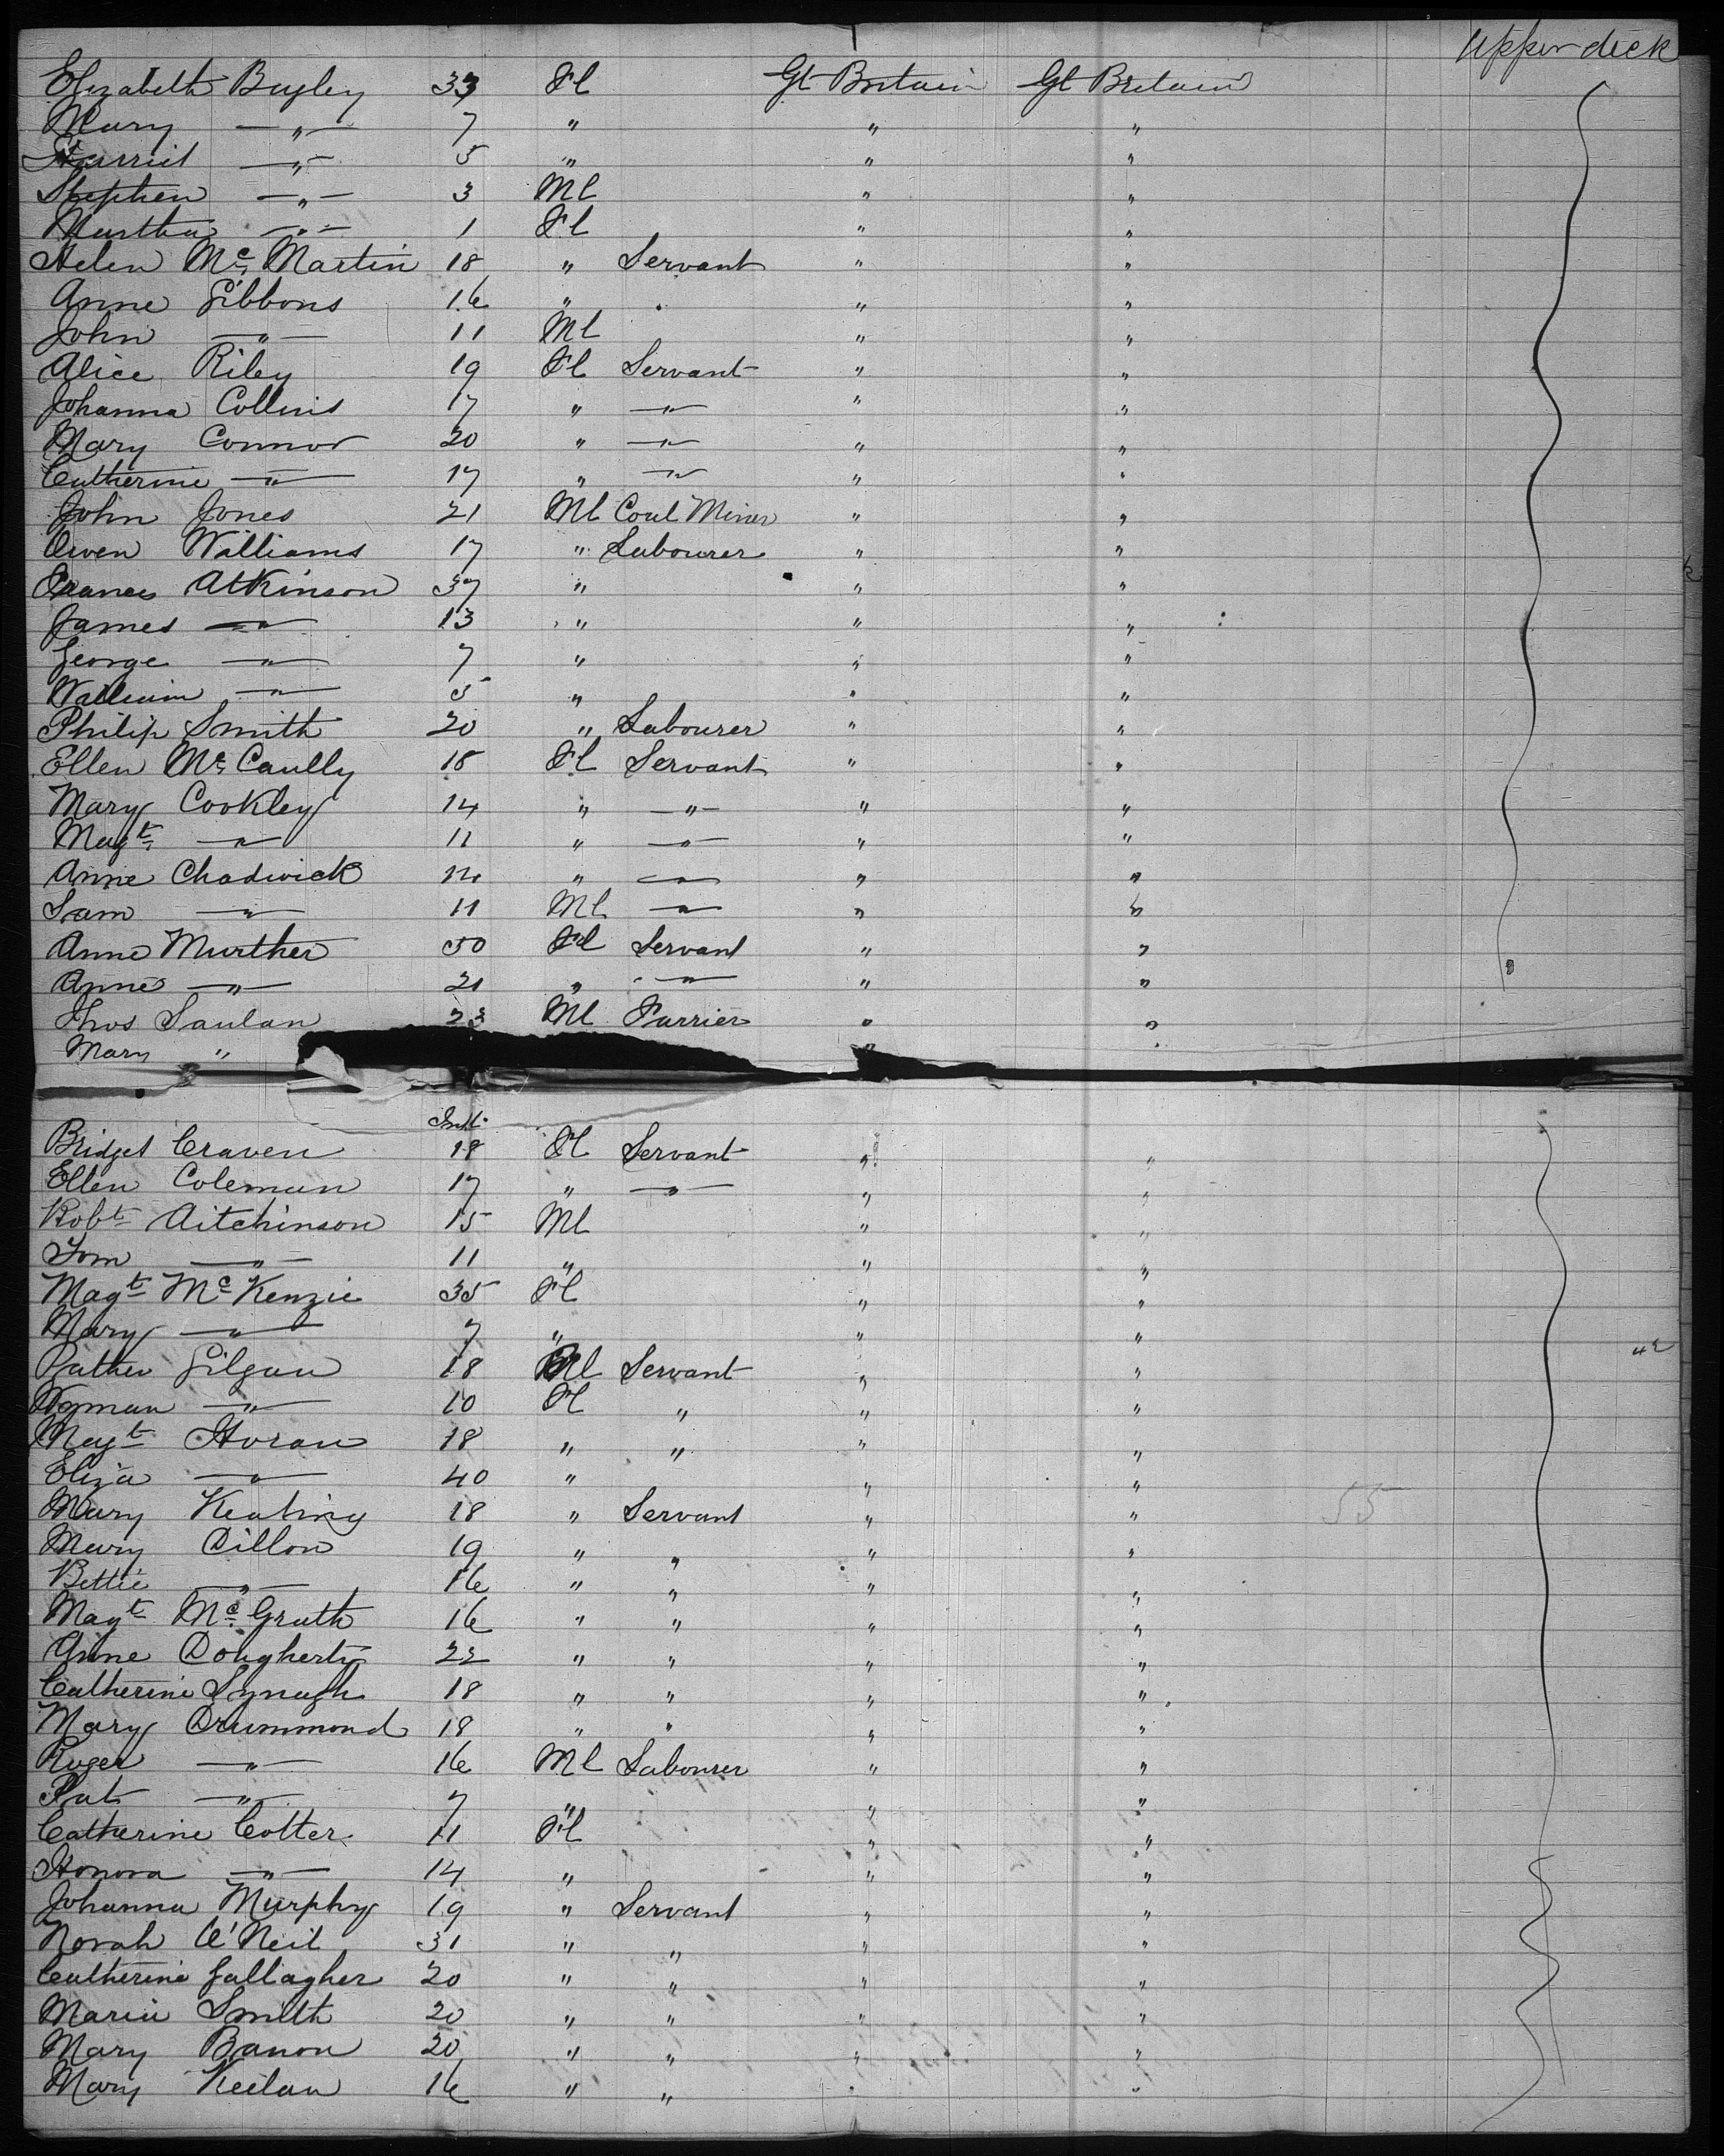 Upper deck
Elizabeth Bayley 33 Fl Gt Britain Gt Britain
Mary —"— 7 " " "
Harriet —"— 5 " " "
Stephen —"— 3 Ml " "
Martha —"— 1 Fl " "
Helen Mc Martin 18 " Servant " "
Anne Gibbons 16 " " " "
John —"— 11 Ml " "
Alice Riley 19 Fl Servant " "
Johanna Collins 17 " —"— " "
Mary Connor 20 " —"— " "
Catherine —"— 17 " —"— " "
John Jones 21 Ml Coal Miner " "
Owen Williams 17 " Labourer " "
Frances Atkinson 37 " " "
James —"— 13 " " "
George —"— 7 " " "
William —"— 5 " " "
Philip Smith 20 " Labourer " "
Ellen Mc Caully 18 Fl Servant " "
Mary Cookley 14 " —"— " "
Magt —"— 11 " —"— " "
Anne Chadwick 14 " —"— " "
Sam —"— 11 Ml —"— " "
Anne Murther 50 Fl Servant " "
Anne —"— 21 " —"— " "
Thos Saulan 23 Ml Farrier " "
Mary " " "
Bridget Craven 18 Fl Servant " "
Ellen Coleman 17 " —"— " "
Robt Aitchinson 15 Ml " "
Tom —"— 11 " " "
Magt Mc Kenzie 35 Fl " "
Mary —"— 7 " " "
Gilgan 18 Ml Servant " "
—"— 10 Fl " " "
Magt Horan 18 " " " "
Eliza —"— 40 " " "
Mary Keating 18 " Servant " " 55
Mary Dillon 19 " " " "
Bettie —"— 16 " " " "
Magt Mc Grath 16 " " " "
Anne Dougherty 22 " " " "
Catherine Lynagh 18 " " " "
Mary Drummond 18 " " " "
Roger —"— 16 Ml Labourer " "
Pat —"— 7 " " "
Catherine Cotter 11 Fl " "
Honora —"— 14 " " "
Johanna Murphy 19 " Servant " "
Norah O'Neil 31 " " " "
Catherine Gallagher 20 " " " "
Maria Smith 20 " " " "
Mary Banon 20 " " " "
Mary Keelan 16 " " " "